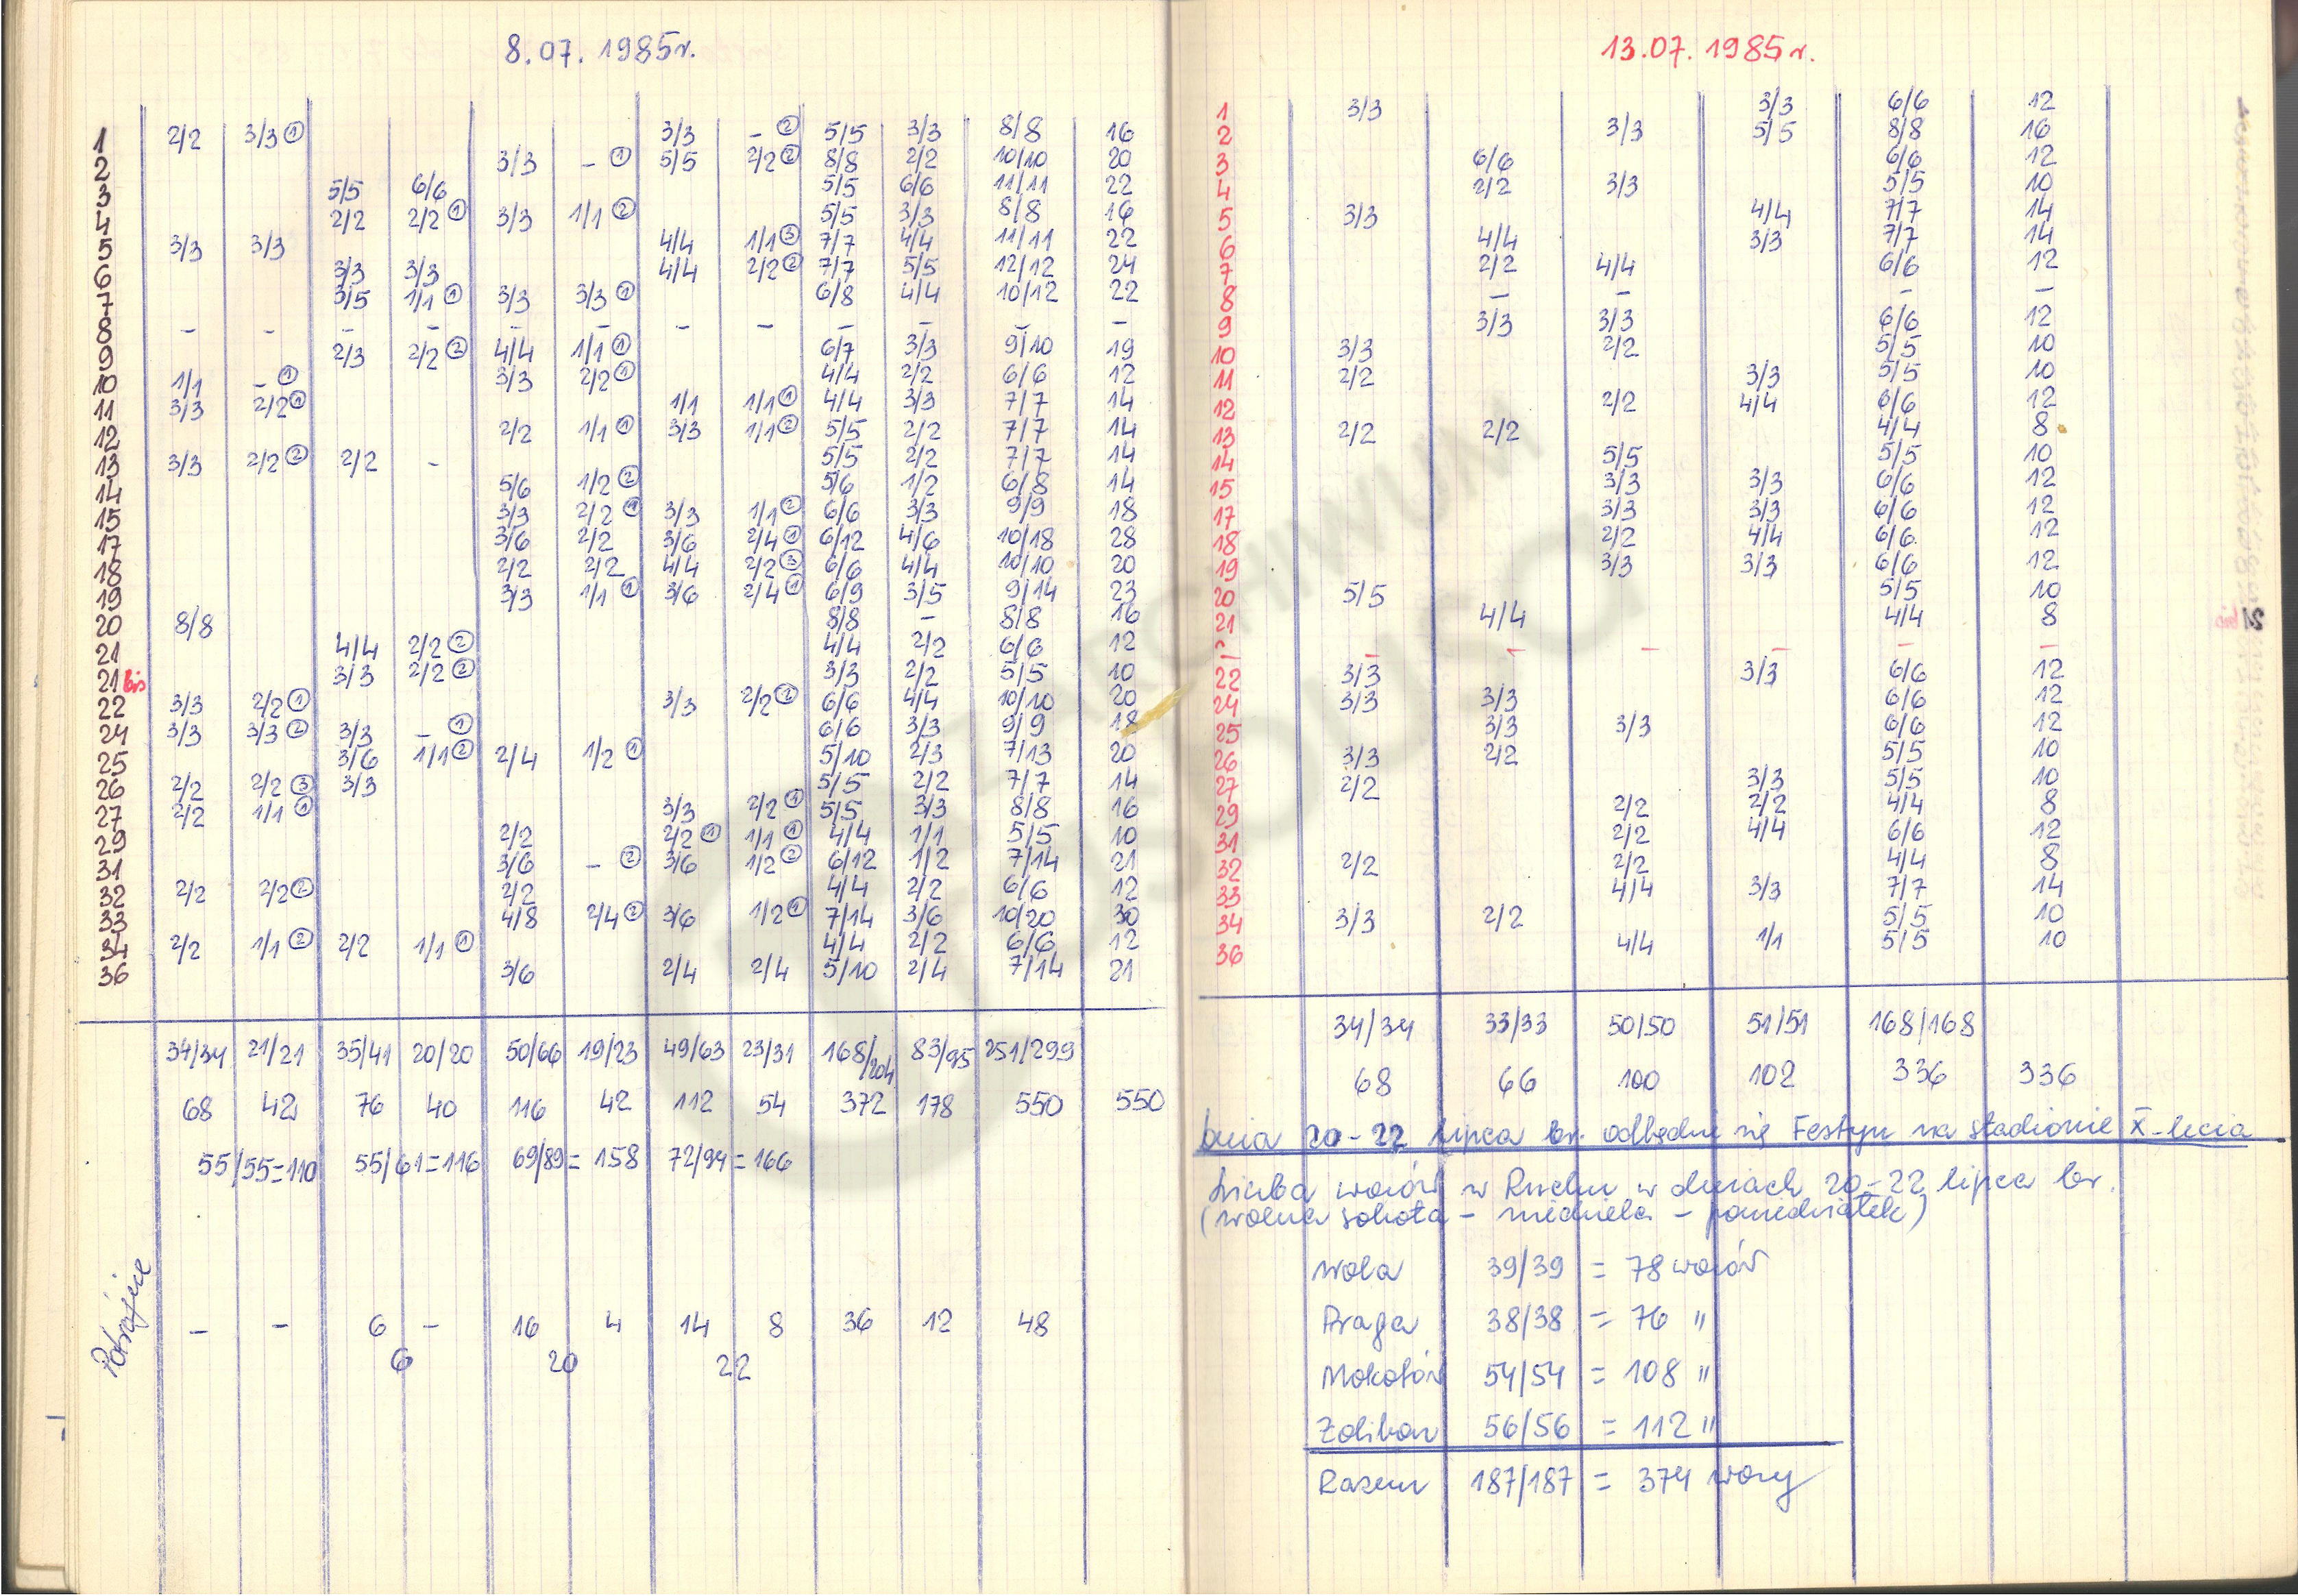 8.07.1985r.
1 2/2 3/3 ① 3/3 - ② 5/5 3/3 8/8 16
2 3/3 - ① 5/5 2/2 ② 8/8 2/2 10/10 20
3 5/5 6/6 5/5 6/6 11/11 22
4 2/2 2/2 ① 3/3 1/1 ② 5/5 3/3 8/8 16
5 3/3 3/3 4/4 1/1 ③ 7/7 4/4 11/11 22
6 3/3 3/3 4/4 2/2 ② 7/7 5/5 12/12 24
7 3/5 1/1 ① 3/3 3/3 ① 6/8 4/4 10/12 22
8 - - - - - - - - - - - -
9 2/3 2/2 ② 4/4 1/1 ① 6/7 3/3 9/10 19
10 1/1 - ① 3/3 2/2 ① 4/4 2/2 6/6 12
11 3/3 2/2 ① 1/1 1/1 ① 4/4 3/3 7/7 14
12 2/2 1/1 ① 3/3 1/1 ② 5/5 2/2 7/7 14
13 3/3 2/2 ② 2/2 - 5/5 2/2 7/7 14
14 5/6 1/2 ② 5/6 1/2 6/8 14
15 3/3 2/2 ① 3/3 1/1 ② 6/6 3/3 9/9 18
17 3/6 2/2 3/6 2/4 ① 6/12 4/6 10/18 28
18 2/2 2/2 4/4 2/2 ③ 6/6 4/4 10/10 20
19 3/3 1/1 ① 3/6 2/4 ① 6/9 3/5 9/14 23
20 8/8 8/8 - 8/8 16
21 4/4 2/2 ② 4/4 2/2 6/6 12
21 bis 3/3 2/2 ② 3/3 2/2 5/5 10
22 3/3 2/2 ① 3/3 2/2 ② 6/6 4/4 10/10 20
24 3/3 3/3 ② 3/3 - ① 6/6 3/3 9/9 18
25 3/6 1/1 ② 2/4 1/2 ① 5/10 2/3 7/13 20
26 2/2 2/2 ③ 3/3 5/5 2/2 7/7 14
27 2/2 1/1 ① 3/3 2/2 ① 5/5 3/3 8/8 16
29 2/2 2/2 ① 1/1 ① 4/4 1/1 5/5 10
31 3/6 - ② 3/6 1/2 ② 6/12 1/2 7/14 21
32 2/2 2/2 ② 2/2 4/4 2/2 6/6 12
33 4/8 2/4 ② 3/6 1/2 ① 7/14 3/6 10/20 30
34 2/2 1/1 ② 2/2 1/1 ① 4/4 2/2 6/6 12
36 3/6 2/4 2/4 5/10 2/4 7/14 21
34/34 21/21 35/41 20/20 50/66 19/23 49/63 23/31 168/204 83/95 251/299
68 42 76 40 116 42 112 54 372 178 550 550
55/55=110 55/61=116 69/89=158 72/94=166
Potrójne - - 6 - 16 4 14 8 36 12 48
6 20 22
13.07.1985r.
1 3/3 3/3 6/6 12
2 3/3 5/5 8/8 16
3 6/6 6/6 12
4 2/2 3/3 5/5 10
5 3/3 4/4 7/7 14
6 4/4 3/3 7/7 14
7 2/2 4/4 6/6 12
8 - - - -
9 3/3 3/3 6/6 12
10 3/3 2/2 5/5 10
11 2/2 3/3 5/5 10
12 2/2 4/4 6/6 12
13 2/2 2/2 4/4 8
14 5/5 5/5 10
15 3/3 3/3 6/6 12
17 3/3 3/3 6/6 12
18 2/2 4/4 6/6 12
19 3/3 3/3 6/6 12
20 5/5 5/5 10
21 4/4 4/4 8
- - - - - -
22 3/3 3/3 6/6 12
24 3/3 3/3 6/6 12
25 3/3 3/3 6/6 12
26 3/3 2/2 5/5 10
27 2/2 3/3 5/5 10
29 2/2 2/2 4/4 8
31 2/2 4/4 6/6 12
32 2/2 2/2 4/4 8
33 4/4 3/3 7/7 14
34 3/3 2/2 5/5 10
36 4/4 1/1 5/5 10
34/34 33/33 50/50 51/51 168/168
68 66 100 102 336 336
Dnia 20-22 lipca br. odbędzie się Festyn na stadionie X-lecia
Liczba wozów w Ruchu w dniach 20-22 lipca br.
(wolna sobota - niedziela - poniedziałek)
Wola 39/39 = 78 wozów
Praga 38/38 = 76 "
Mokotów 54/54 = 108 "
Żoliborz 56/56 = 112 "
Razem 187/187 = 374 wozy
ARCHIWUM